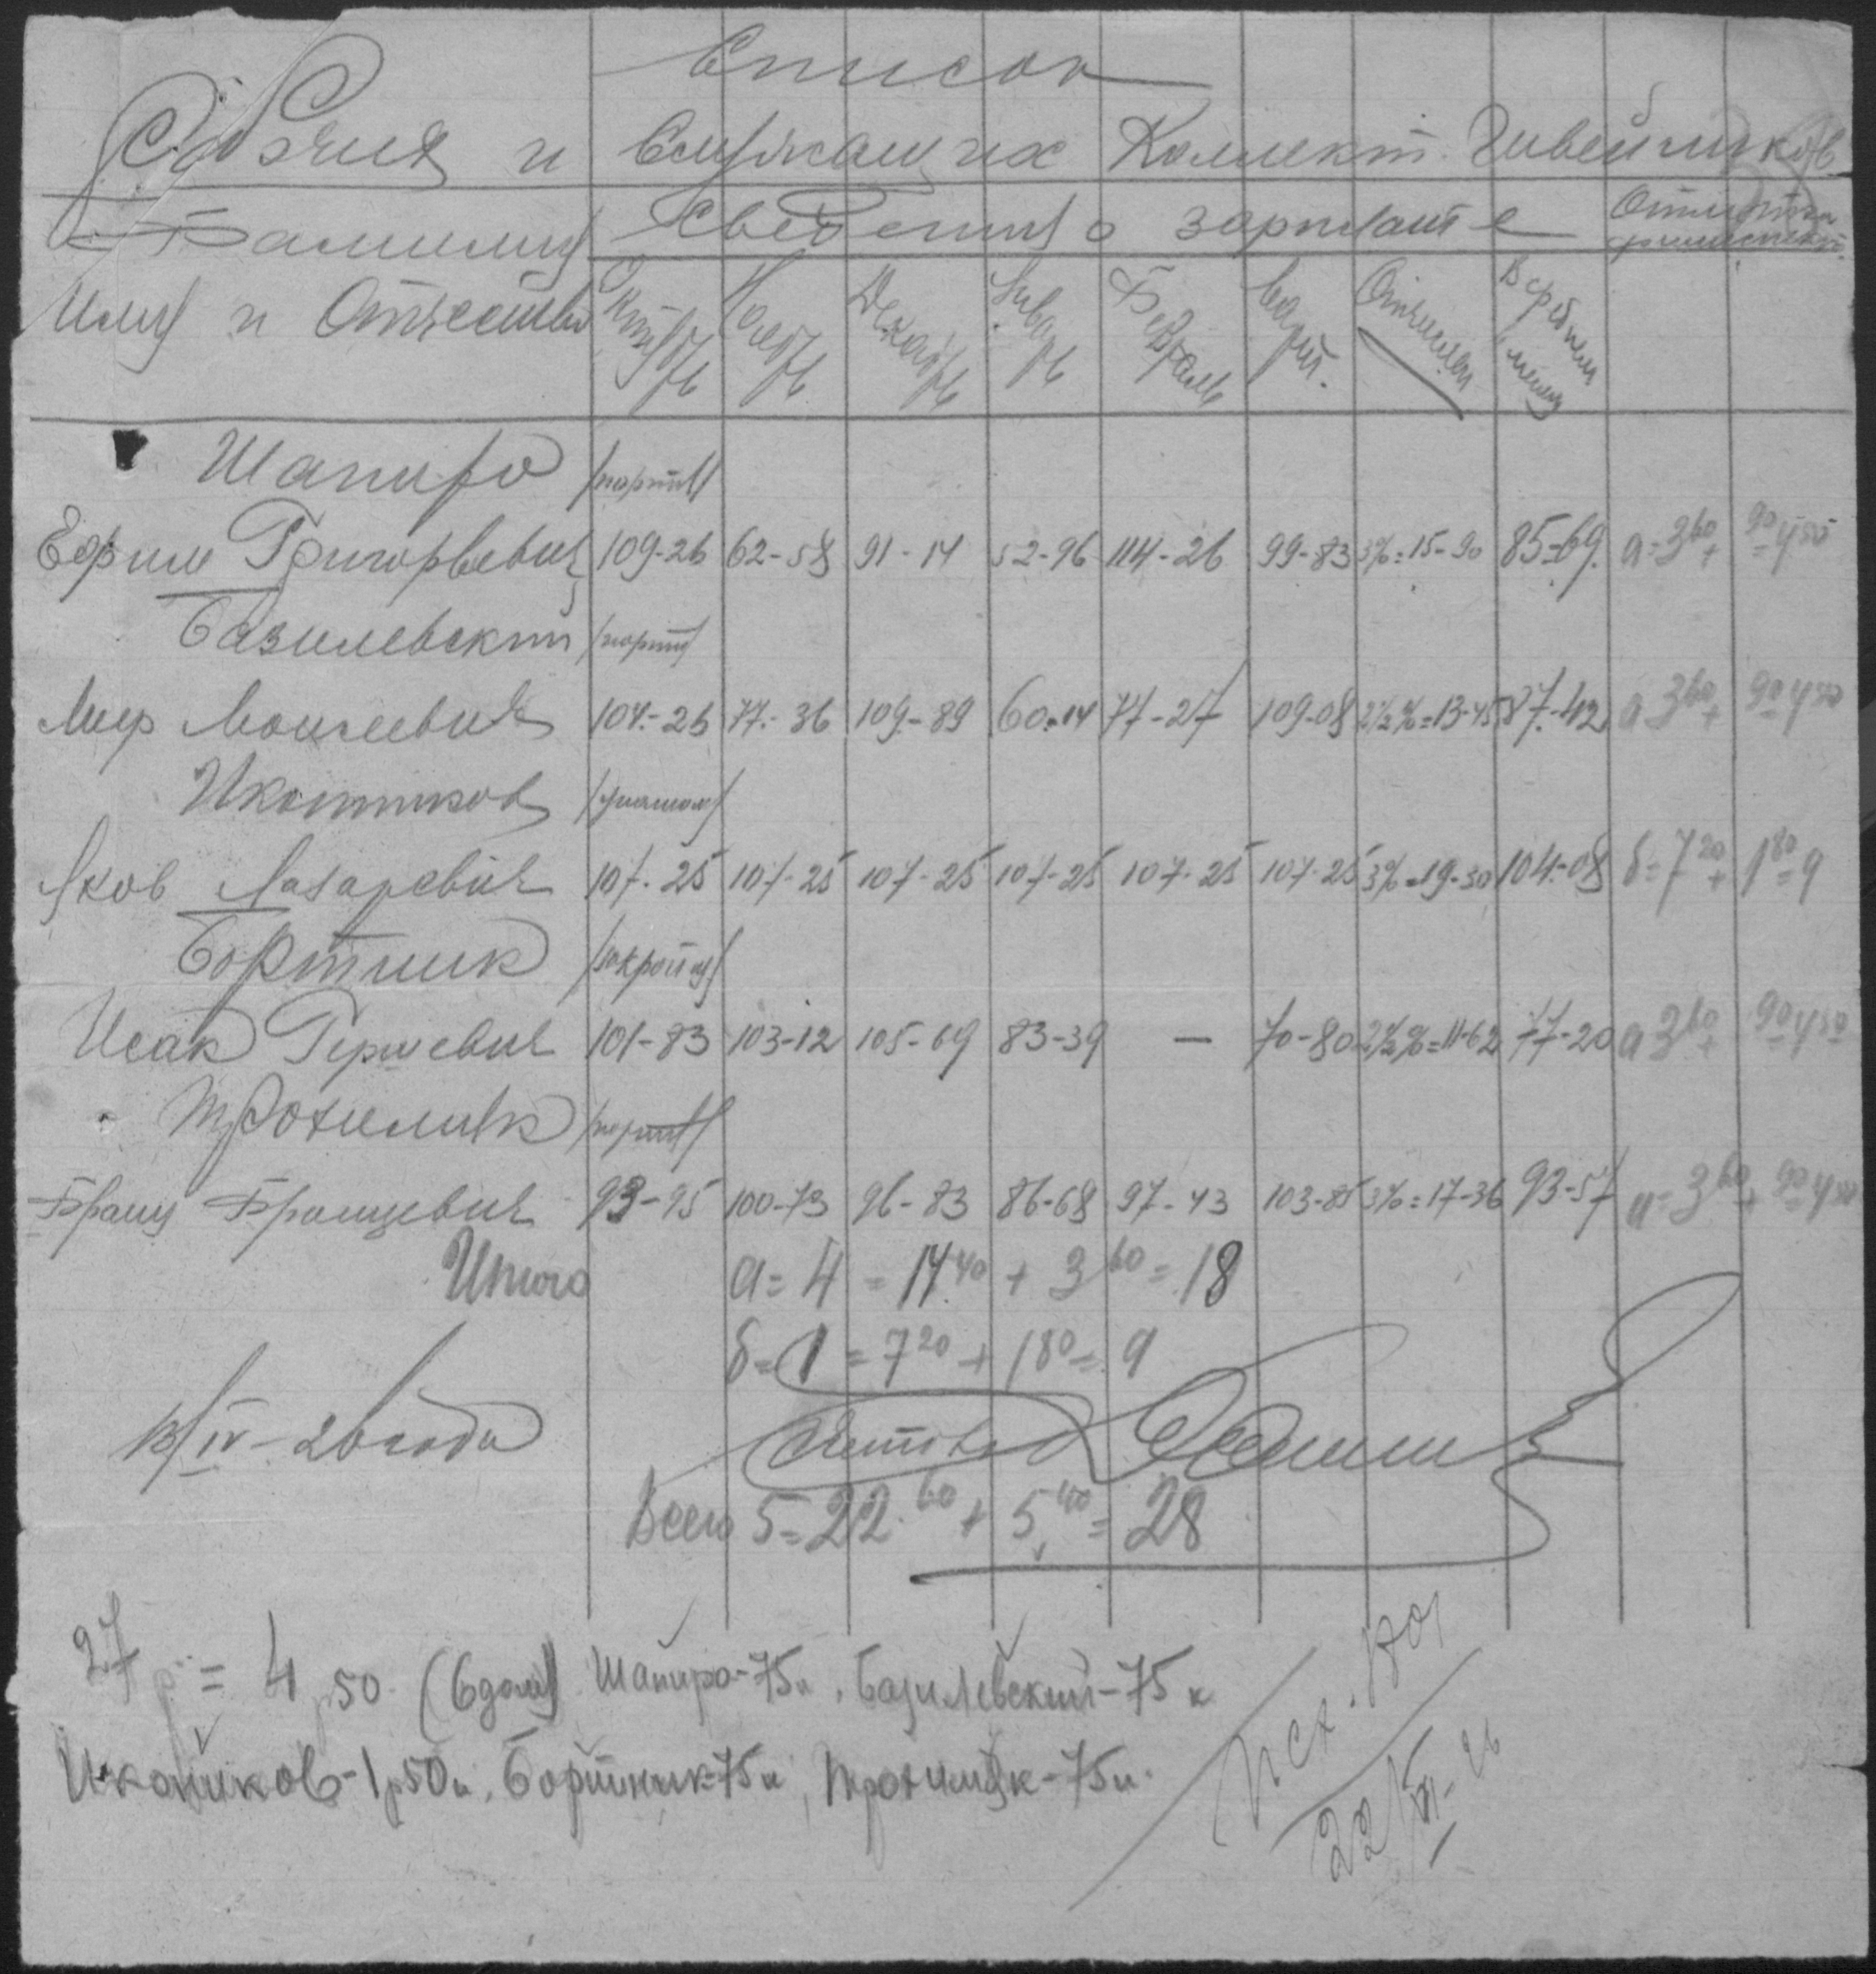 Список
Рабочих и Служащих Коллект. Швейников
Фамилия Сведения о зарплате Отметка
Имя и Отчество Октябрь Ноябрь Декабрь Январь Февраль Март. Отчислен В среднем
Шапиро /портн/
Ефим Григорьевич 109-26 62-58 91-14 52-96 114-26 99-83 3%=15-90 85-69. а-3 60 + 90 = 4 50
Базилевский /портн/
Меер Моисеевич 104-26 77-36 109-89 60-14 77-27 109-08 2½%=13-45 87-42 а 3 60 + 90 = 4 50
Икотников
Яков Лазаревич 107-25 107-25 107-25 107-25 107-25 107-25 3%=19-30 104-08 б=7 20 + 1 80 = 9
Бортник /закройщ/
Исак Гершевич 101-83 103-12 105-69 83-39 — 70-80 2½%=11-62 77-20 а 3 60 + 90 = 4 50
Трохимчик /портн/
Франц Францевич 93-95 100-73 96-83 86-68 97-43 103-85 3%=17-36 93-57 а-3 60 + 90 = 4 50
Итого а=4=14 40 + 3 60 = 18
б=1=7 20 + 1 80 = 9
13/IV-26 года Счетовод
Всего 5=22.60+5 40=28
27 р = 4 р 50. Шапиро-75к, Базилевский-75к
Икотников-1р50к, Бортник-75к, Трохимчик-75к.
Исх.
22/VI-26